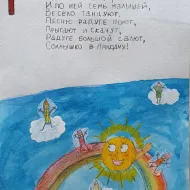 И по ней семь малышей,
Весело танцуют.
Песню радуге поют,
Прыгают и скачут,
Радуге большой салют,
Солнышко в придачу!